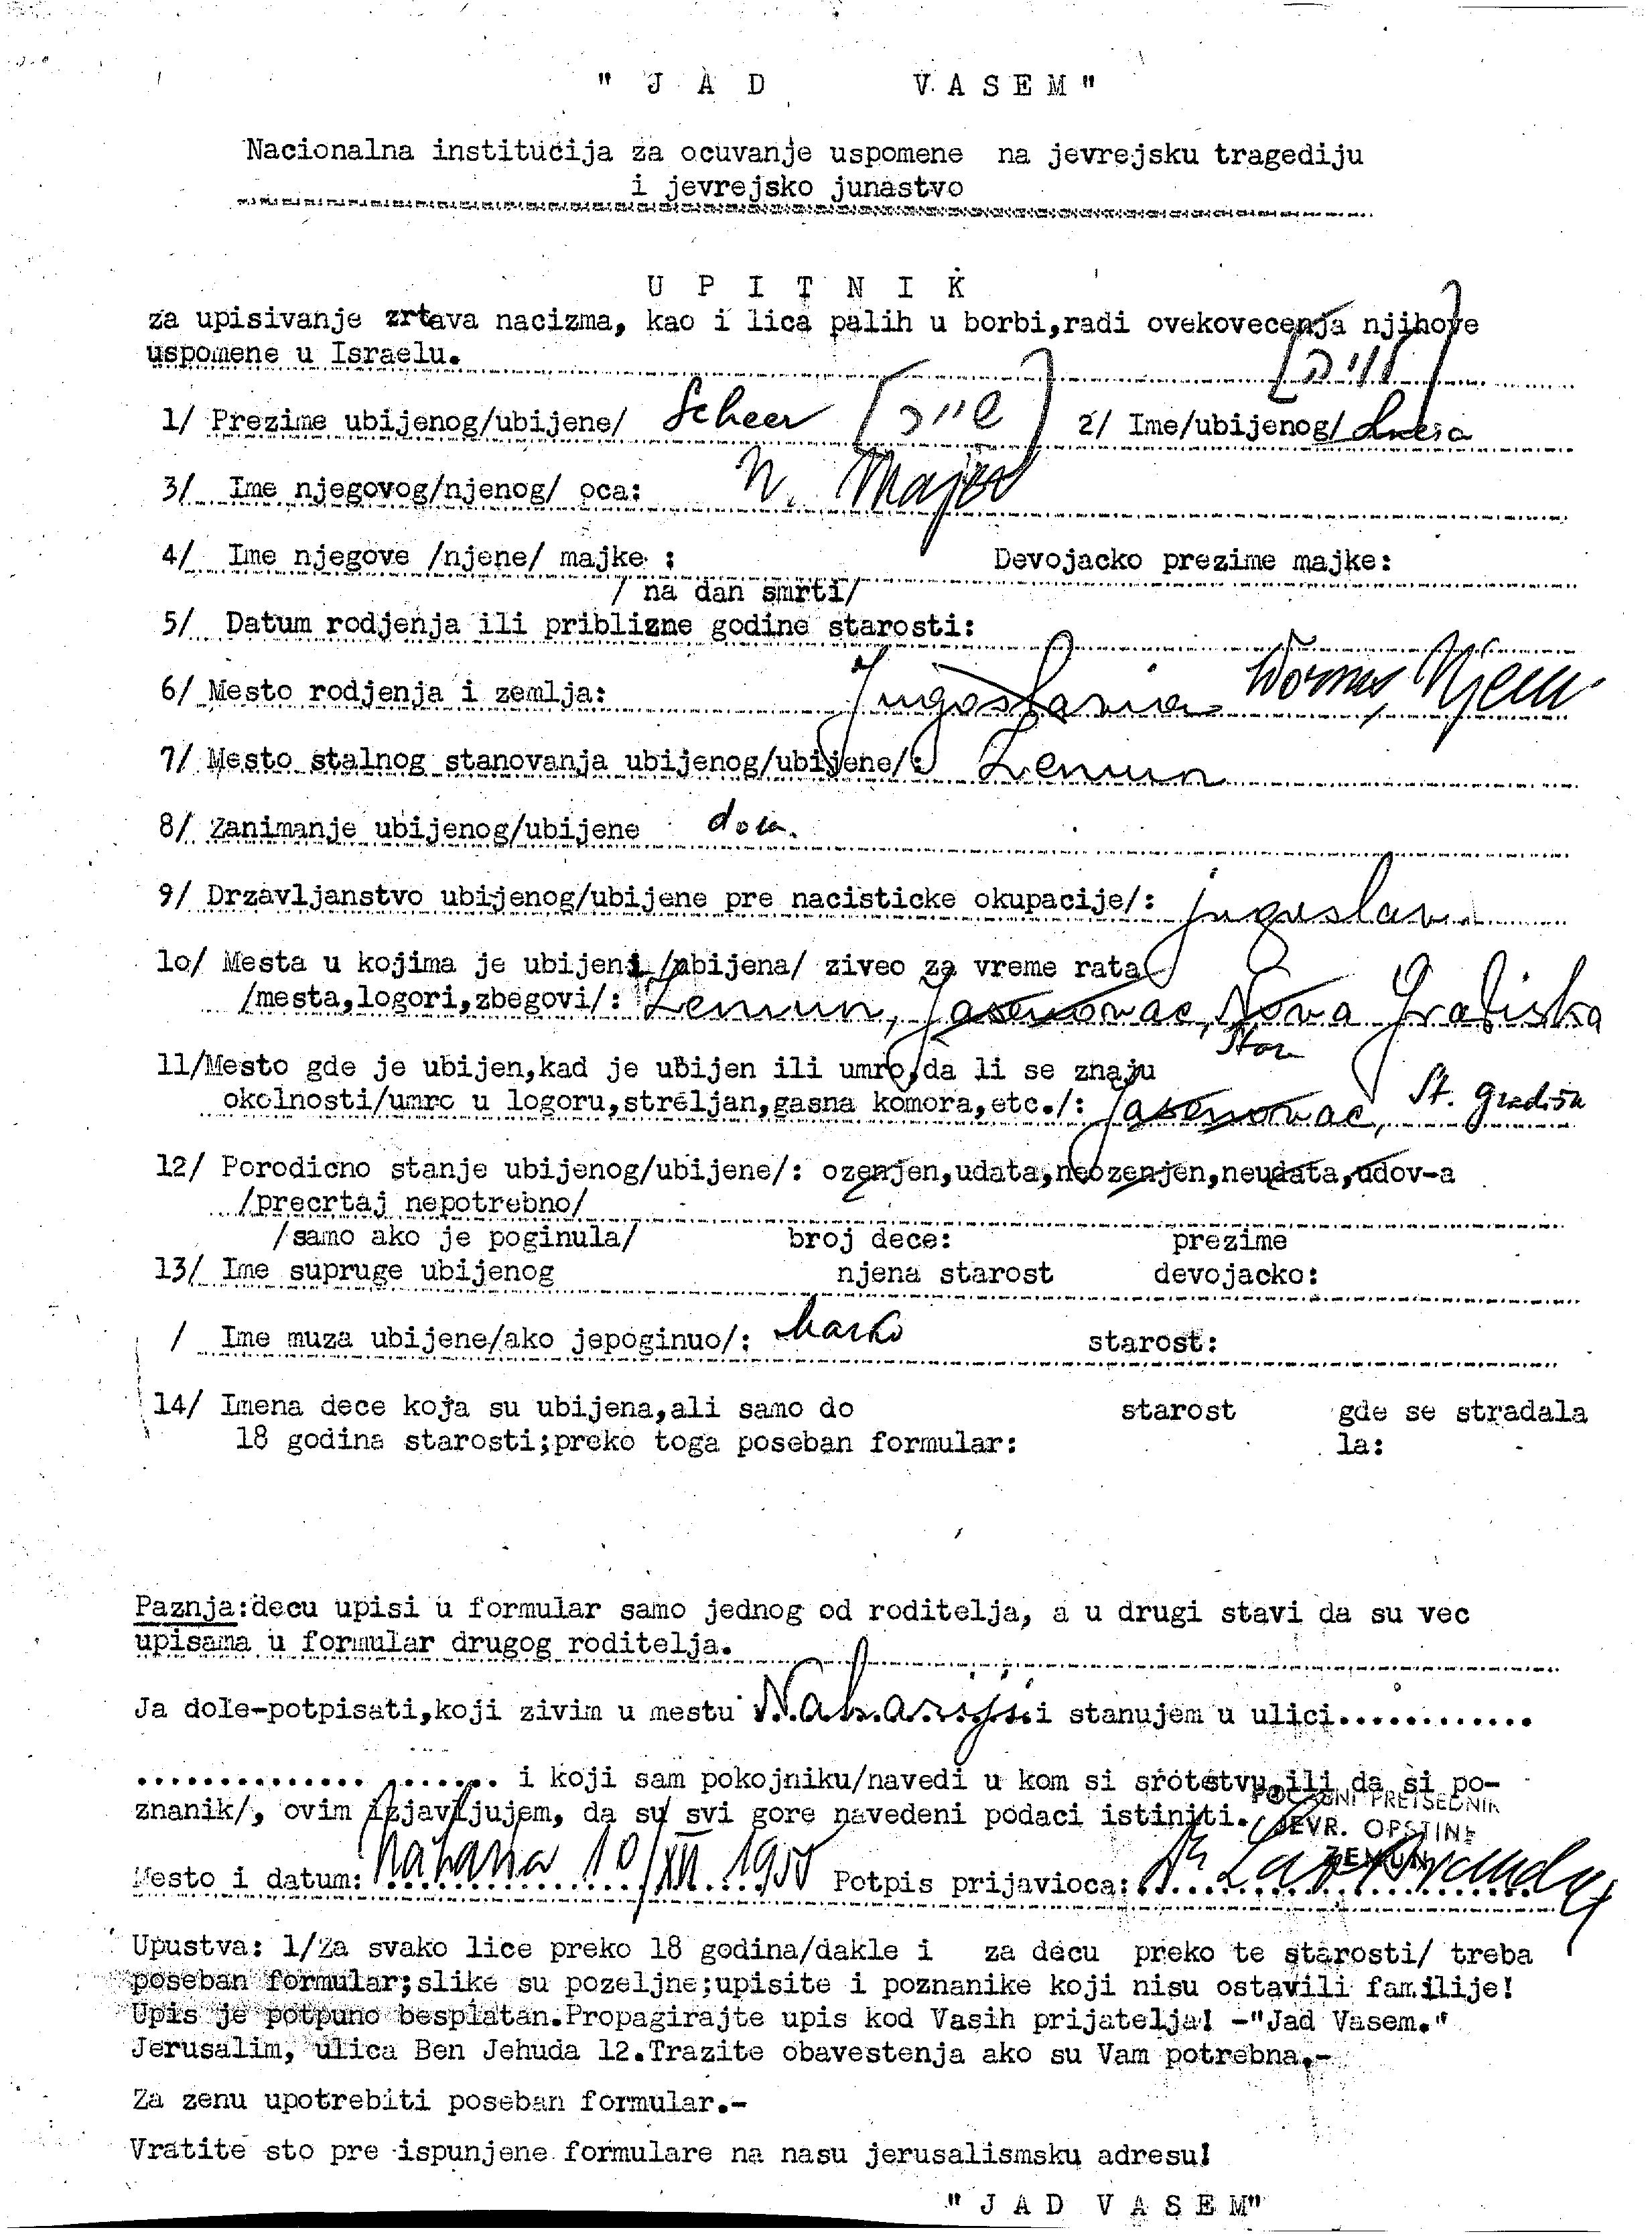 " J A D V A S E M "
Nacionalna institucija za ocuvanje uspomene na jevrejsku tragediju
i jevrejsko junastvo
U P I T N I K
za upisivanje zrtava nacizma, kao i lica palih u borbi,radi ovekovecenja njihove
uspomene u Israelu.
1/ Prezime ubijenog/ubijene/ Scheer [שייר] 2/ Ime/ubijenog/
3/ Ime njegovog/njenog/ oca: N. Majer
4/ Ime njegove /njene/ majke : Devojacko prezime majke:
/ na dan smrti/
5/ Datum rodjenja ili priblizne godine starosti:
6/ Mesto rodjenja i zemlja: Jugoslavia Worms, Njem
7/ Mesto stalnog stanovanja ubijenog/ubijene/: Zemun
8/ Zanimanje ubijenog/ubijene dom.
9/ Drzavljanstvo ubijenog/ubijene pre nacisticke okupacije/: jugoslav.
1o/ Mesta u kojima je ubijeni /ubijena/ ziveo za vreme rata
/mesta,logori,zbegovi/: Zemun, Jasenovac, Nova Gradiska
Stara
11/Mesto gde je ubijen,kad je ubijen ili umro,da li se znaju
okolnosti/umro u logoru,streljan,gasna komora,etc./: Jasenovac, St. Gradiša
12/ Porodicno stanje ubijenog/ubijene/: ozenjen,udata,neozenjen,neudata,udov-a
/precrtaj nepotrebno/
/samo ako je poginula/ broj dece: prezime
13/ Ime supruge ubijenog njena starost devojacko:
/ Ime muza ubijene/ako jepoginuo/: Marko starost:
14/ Imena dece koja su ubijena,ali samo do starost gde se stradala
18 godina starosti;preko toga poseban formular: la:
Paznja:decu upisi u formular samo jednog od roditelja, a u drugi stavi da su vec
upisama u formular drugog roditelja.
Ja dole-potpisati,koji zivim u mestu Nahariji i stanujem u ulici............
.............. ....... i koji sam pokojniku/navedi u kom si srotstvu,ili da si po-
znanik/, ovim izjavljujem, da su svi gore navedeni podaci istiniti.
POČASNI PRETSEDNIK
JEVR. OPSTINE
ZEMUN
Mesto i datum: Naharia 10/XII 1955 Potpis prijavioca: Dr
Upustva: 1/Za svako lice preko 18 godina/dakle i za decu preko te starosti/ treba
poseban formular;slike su pozeljne;upisite i poznanike koji nisu ostavili familije!
Upis je potpuno besplatan.Propagirajte upis kod Vasih prijatelja! -"Jad Vasem."
Jerusalim, ulica Ben Jehuda 12.Trazite obavestenja ako su Vam potrebna.-
Za zenu upotrebiti poseban formular.-
Vratite sto pre ispunjene formulare na nasu jerusalismsku adresu!
" J A D V A S E M"